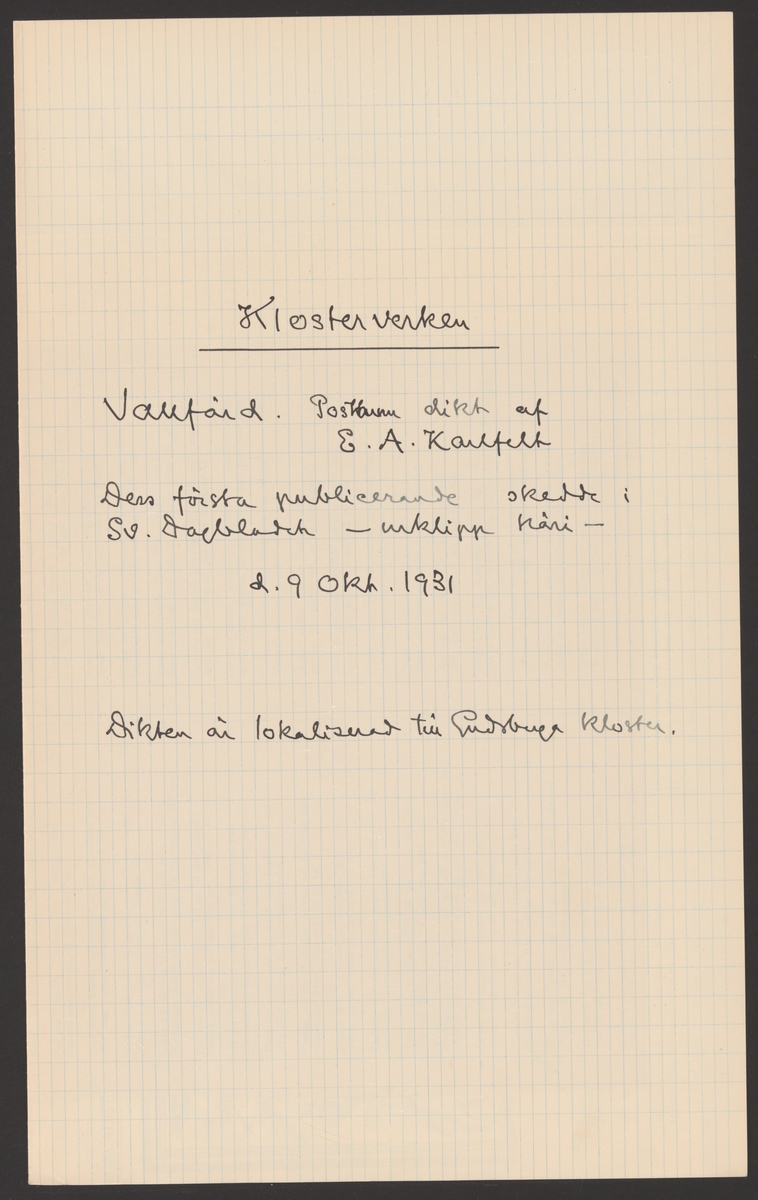 Klosterverken
Vallfärd. Posthum dikt af
E. A. Karlfelt
Dess första publicerande skedde i
Sv. Dagbladet — urklipp häri —
d. 9 Okt. 1931
Dikten är lokaliserad till Gudsberga kloster.